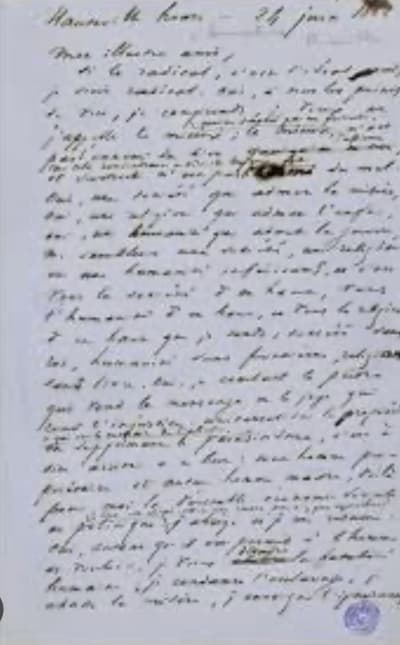 Hauteville house - 24 juin
Mon illustre ami,
Si le radical, c'est l'idéal, oui,
je suis radical. Oui, à tous les points
de vue, je comprends, je veux et
j'appelle le mieux ; le mieux, n'est
pas ennemi du bien
du mal.
Oui, une société qui admet la misère,
oui, une religion qui admet l'enfer,
oui, une humanité qui admet la guerre,
me semblent une société, une religion
et une humanité inférieures, et c'est
vers la société d'en haut, vers
l'humanité d'en haut, et vers la religion
d'en haut que je tends, société sans
roi, humanité sans frontières, religion
sans livre. Oui, je combats le prêtre
qui vend le mensonge et le juge qui
rend l'injustice. universaliser la propriété
en supprimant le parasitisme, c'est à
dire arriver à ce but : tout homme pro-
priétaire et aucun homme maître, voilà
pour moi la véritable économie sociale
et politique. j'abrège et je me résume.
Oui, autant qu'il est permis à l'homme
de vouloir, je veux détruire la fatalité
humaine ; je condamne l'esclavage, je
chasse la misère, j'enseigne l'ignorance